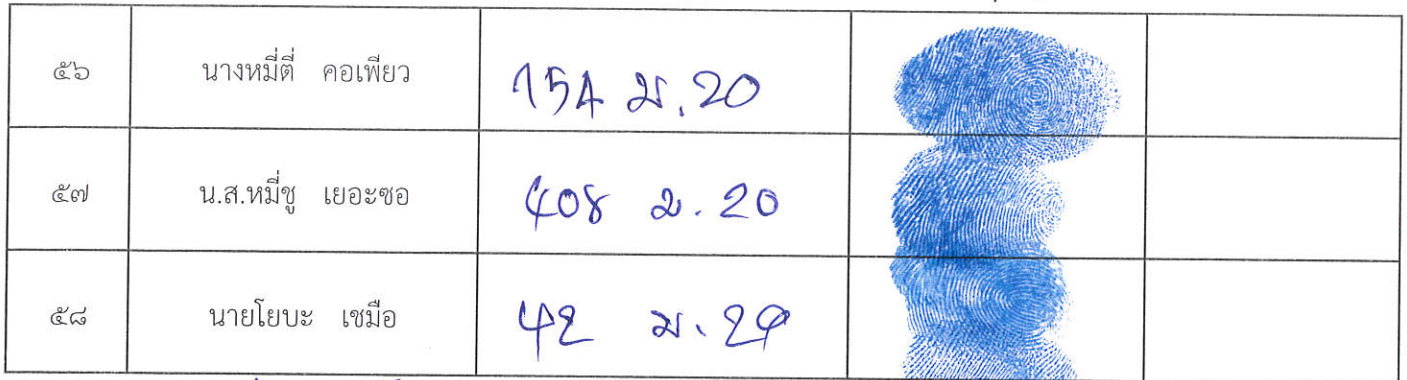 ๕๖ นางหมี่ตี่ คอเพียว 154 ม.20
๕๗ น.ส.หมี่ชู เยอะซอ 408 ม.20
๕๘ นายโยบะ เชมือ 42 ม.29